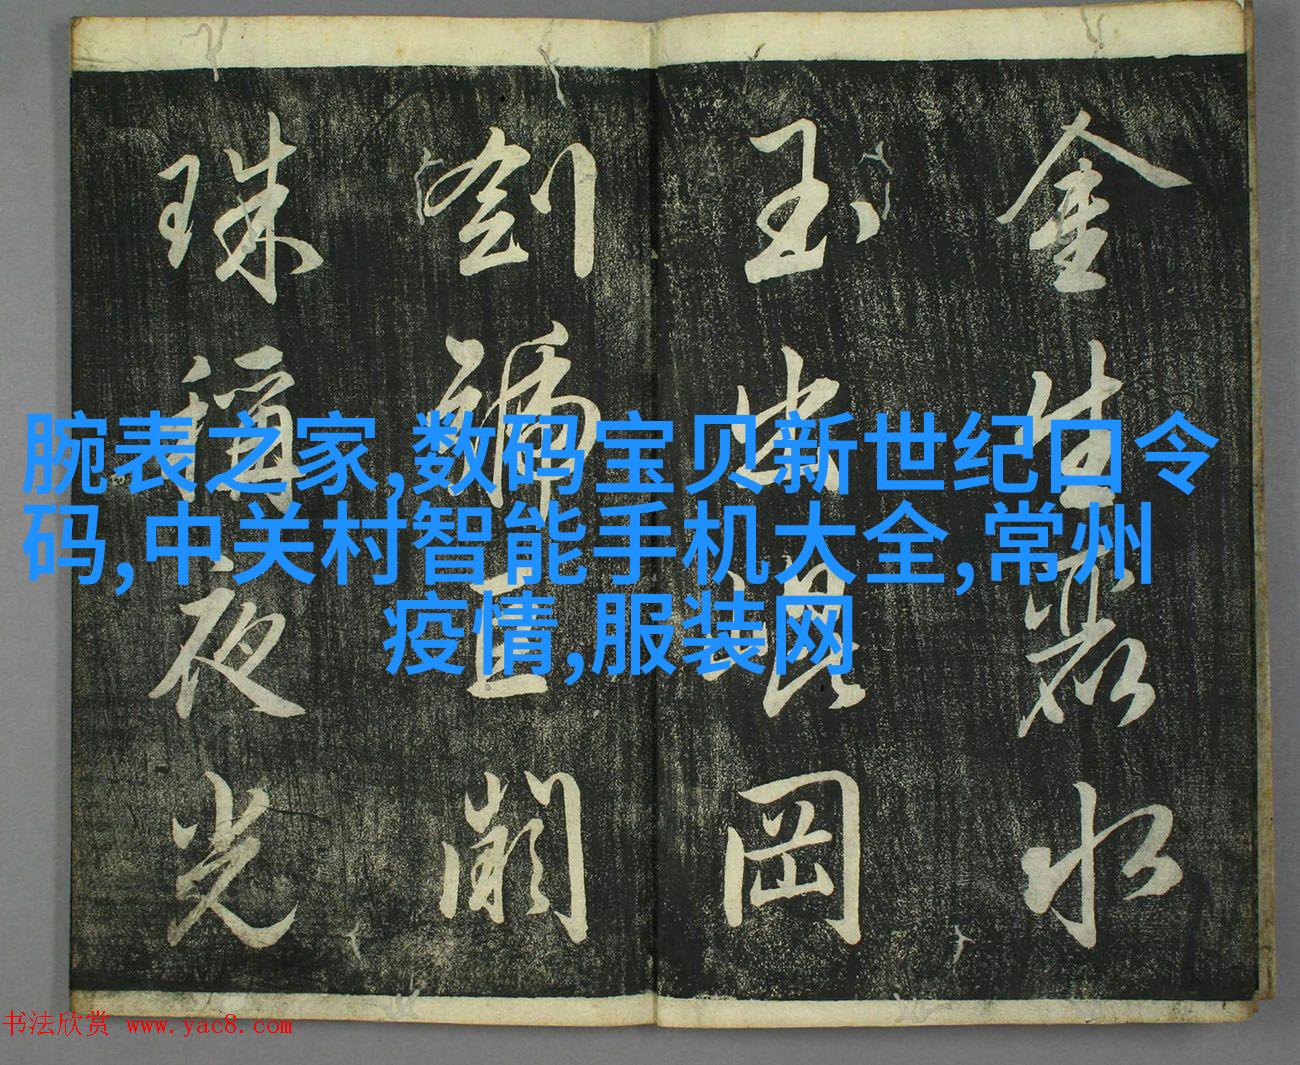 金生麗水
玉出崑岡
劍號巨闕
珠稱夜光
腕表之家,数码宝贝新世纪口令
码,中关村智能手机大全,常州
疫情,服装网
书法欣赏 www.yac8.com